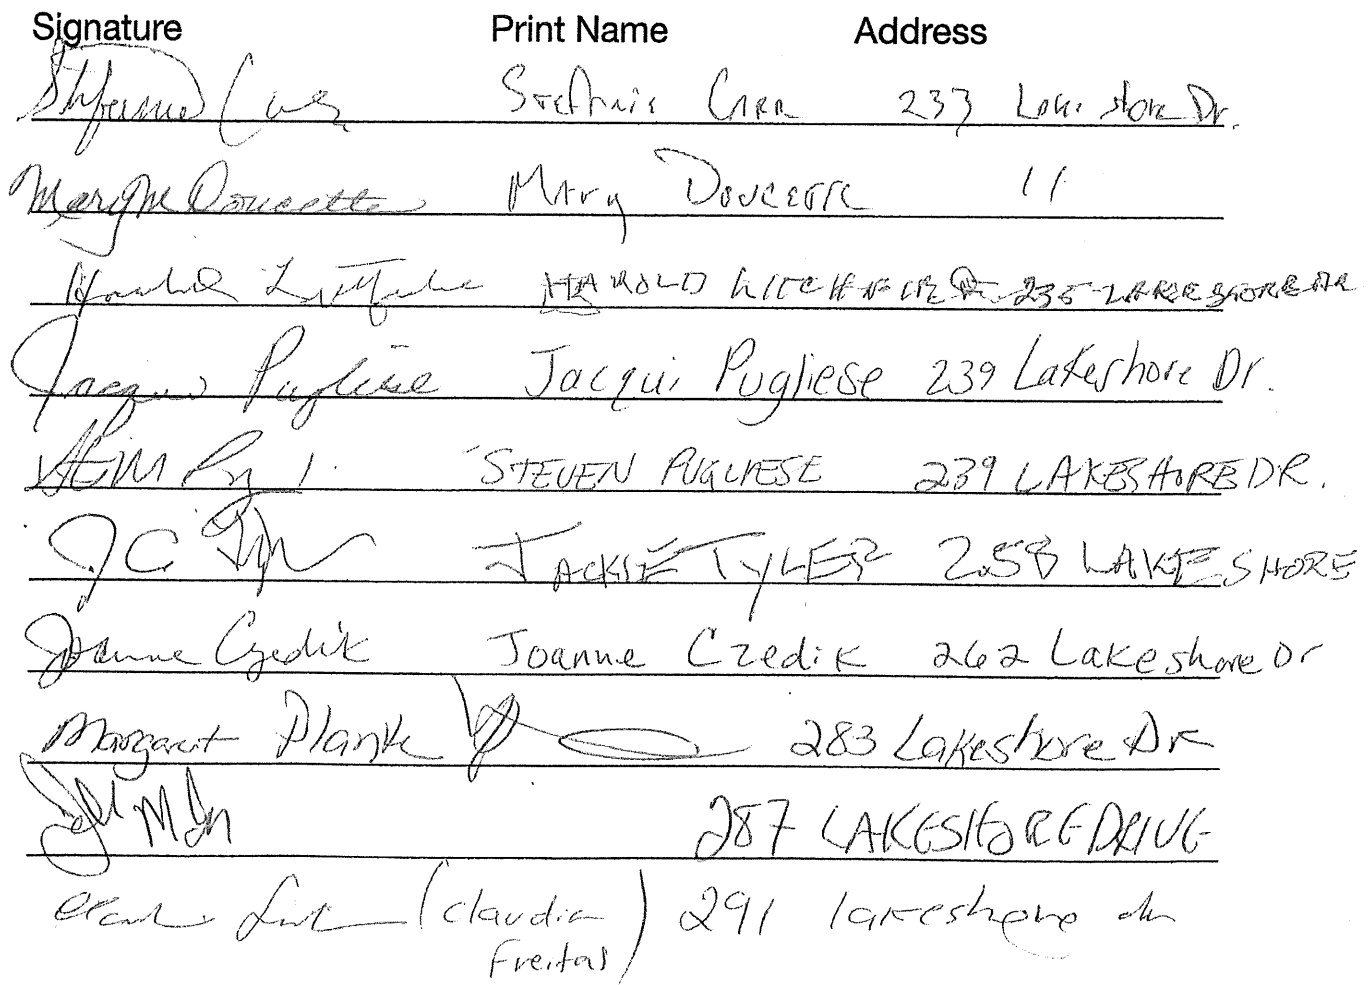 Signature Print Name Address
Stefanie Carr Stefanie Carr 237 Lakeshore Dr.
Mary Doucette Mary Doucette 11
Harold HAROLD 235 LAKESHORE DR
Jacqui Pugliese Jacqui Pugliese 239 Lakeshore Dr.
STEVEN PUGLIESE 239 LAKESHORE DR.
J C Tyler JACKIE TYLER 258 LAKESHORE
Joanne Czedik Joanne Czedik 262 Lakeshore Dr
Margaret Plank 283 Lakeshore Dr
287 LAKESHORE DRIVE
(Claudia 291 lakeshore dr
Freitas)